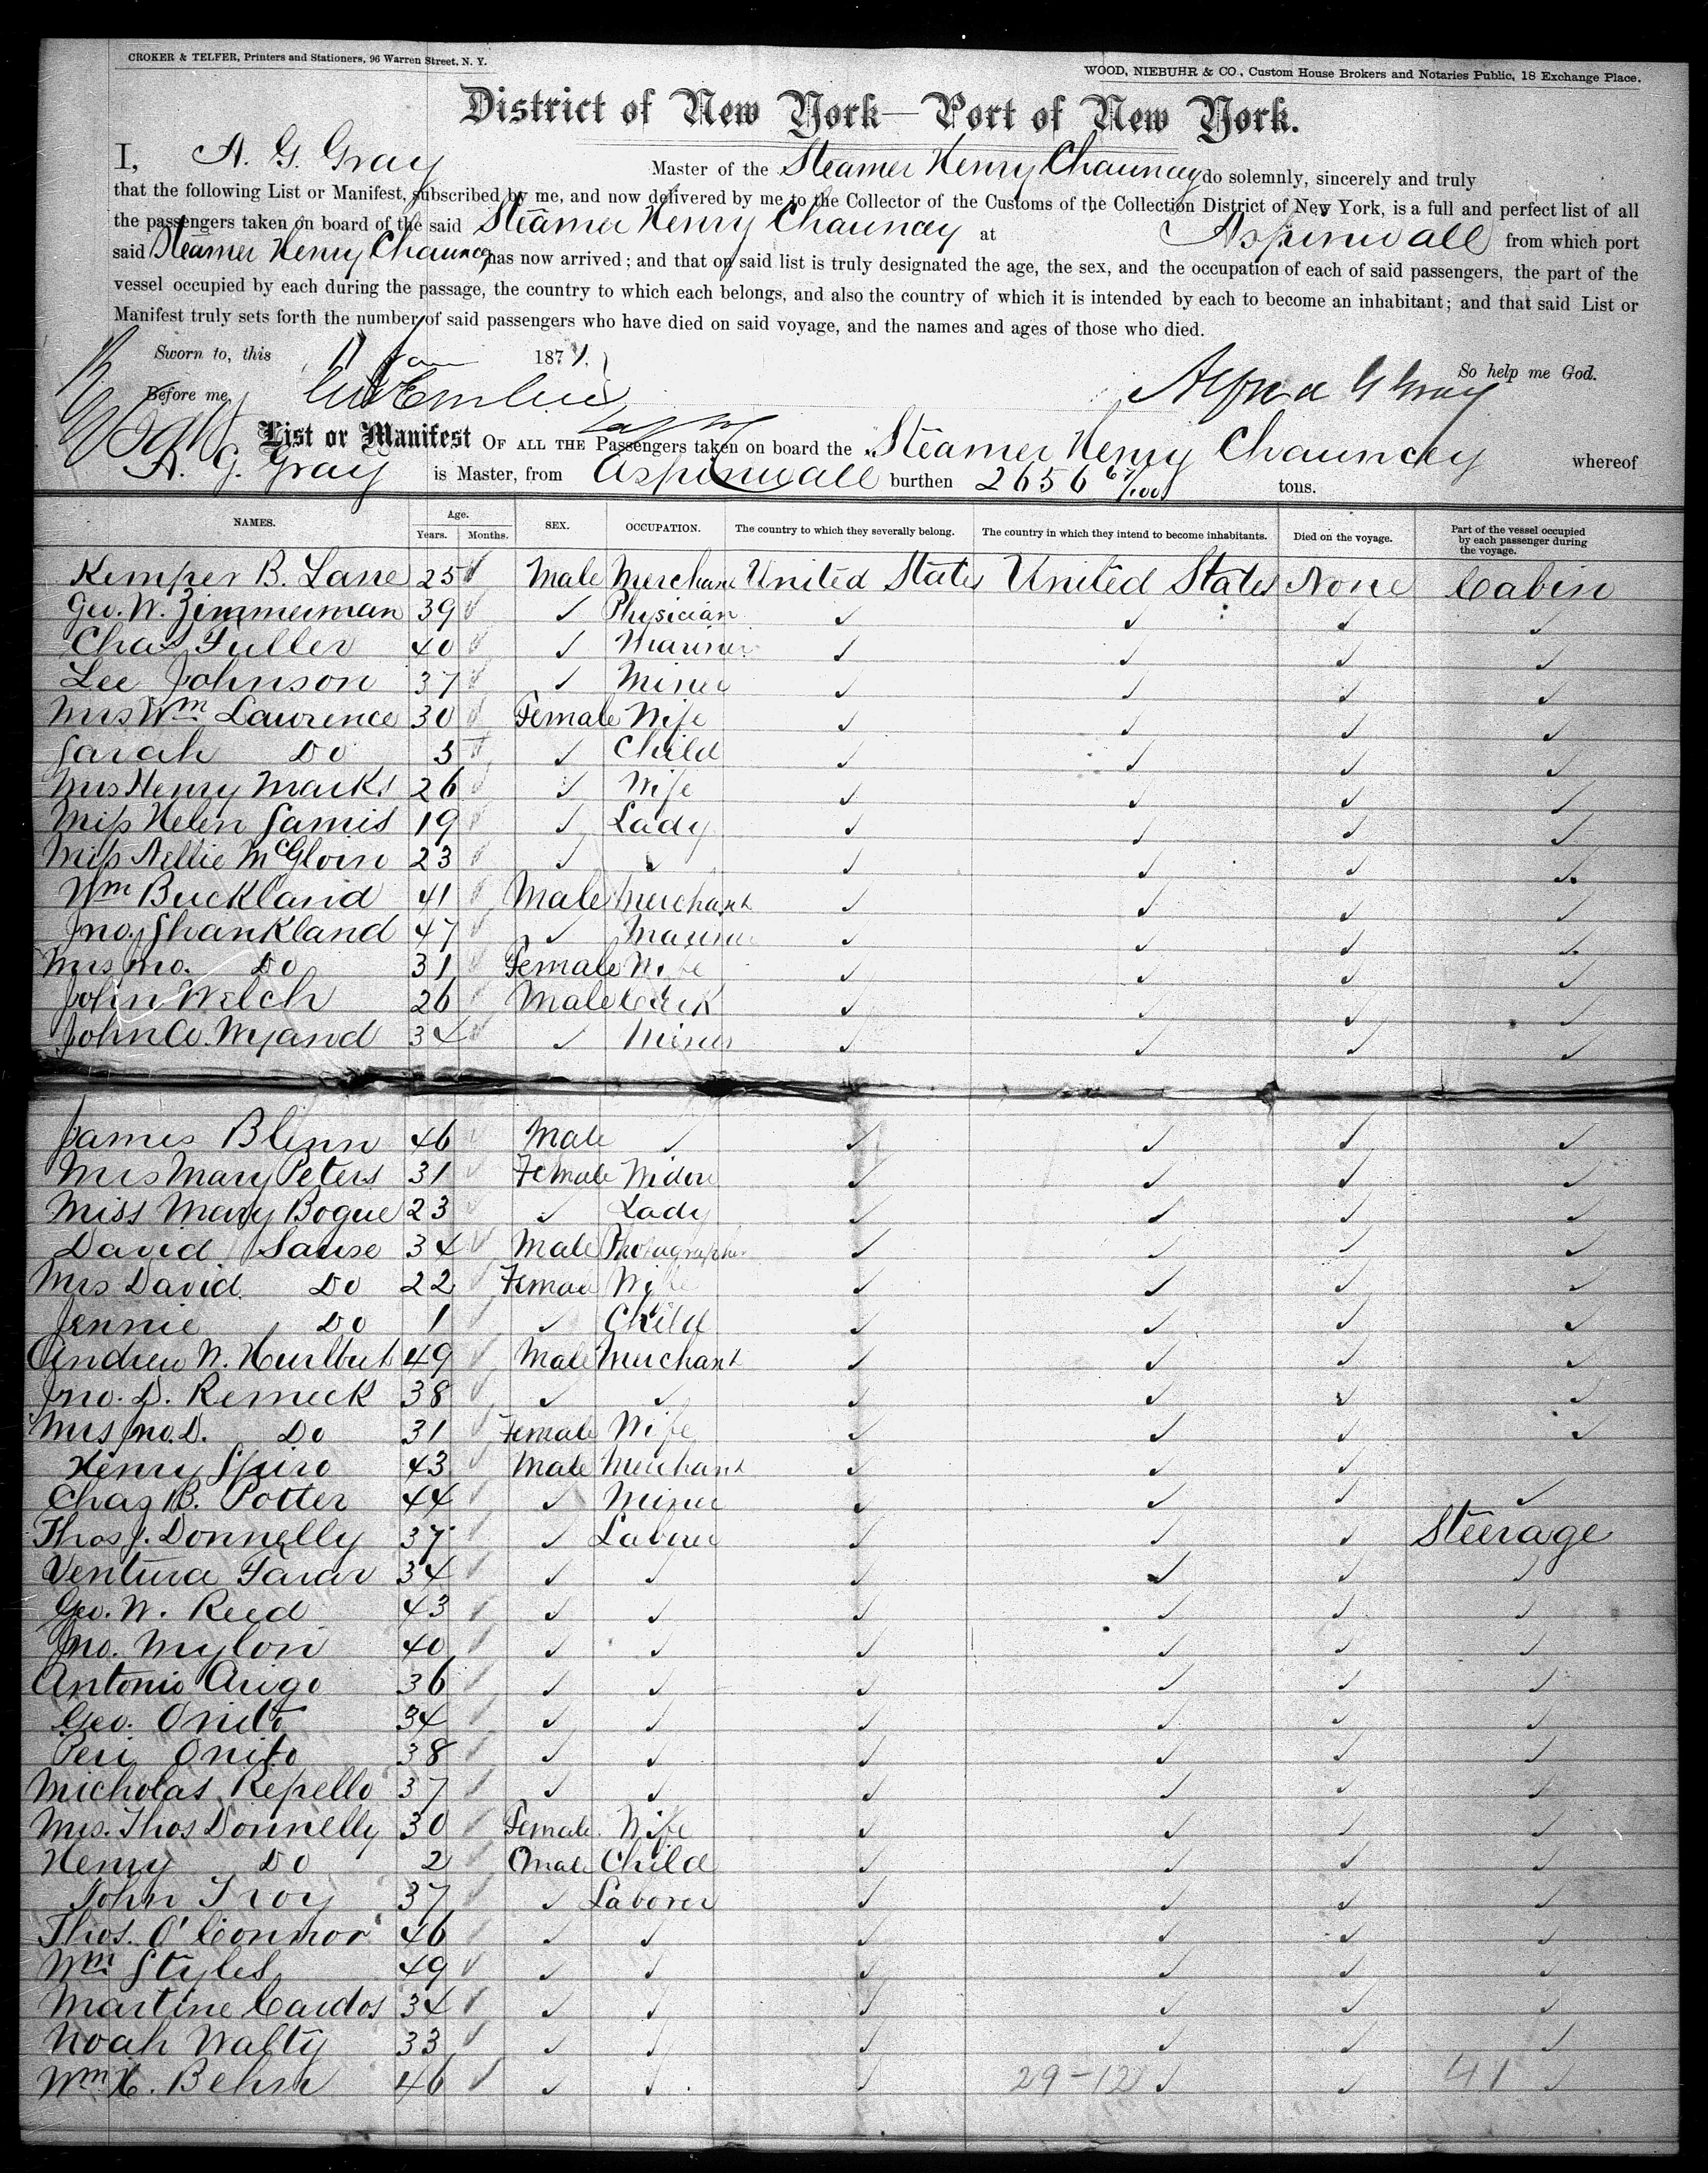 CROKER & TELFER, Printers and Stationers, 96 Warren Street, N. Y.
WOOD, NIEBUHR & CO., Custom House Brokers and Notaries Public, 18 Exchange Place.
District of New York—Port of New York.
I, A. G. Gray Master of the Steamer Henry Chauncey do solemnly, sincerely and truly
that the following List or Manifest, subscribed by me, and now delivered by me to the Collector of the Customs of the Collection District of New York, is a full and perfect list of all
the passengers taken on board of the said Steamer Henry Chauncey at Aspinwall from which port
said Steamer Henry Chauncey has now arrived; and that on said list is truly designated the age, the sex, and the occupation of each of said passengers, the part of the
vessel occupied by each during the passage, the country to which each belongs, and also the country of which it is intended by each to become an inhabitant; and that said List or
Manifest truly sets forth the number of said passengers who have died on said voyage, and the names and ages of those who died.
Sworn to, this 11 Jan 1871.
So help me God.
Before me, Alfred G Gray
List or Manifest OF ALL THE Passengers taken on board the Steamer Henry Chauncey whereof
A. G. Gray is Master, from Aspinwall burthen 2656 67/100 tons.
NAMES. Age. Years. Months. SEX. OCCUPATION. The country to which they severally belong. The country in which they intend to become inhabitants. Died on the voyage. Part of the vessel occupied by each passenger during the voyage.
Kemper B. Lane 25 Male Merchant United States United States None Cabin
Geo. W. Zimmerman 39 ✓ Physician ✓ ✓ ✓ ✓
Chas Fuller 40 ✓ Mariner ✓ ✓ ✓ ✓
Lee Johnson 37 ✓ Miner ✓ ✓ ✓ ✓
Mrs Wm Lawrence 30 Female Wife ✓ ✓ ✓ ✓
Sarah Do 3 ✓ Child ✓ ✓ ✓ ✓
Mrs Henry Marks 26 ✓ Wife ✓ ✓ ✓ ✓
Miss Helen Samis 19 ✓ Lady ✓ ✓ ✓ ✓
Miss Nellie McGloin 23 ✓ ✓ ✓ ✓ ✓ ✓
Wm Buckland 41 Male Merchant ✓ ✓ ✓ ✓
Jno. Shankland 47 ✓ Mariner ✓ ✓ ✓ ✓
Mrs Jno. Do 31 Female Wife ✓ ✓ ✓ ✓
John Welch 26 Male Clerk ✓ ✓ ✓ ✓
John W. Wyand 34 ✓ Miner ✓ ✓ ✓ ✓
James Blinn 46 Male ✓ ✓ ✓ ✓ ✓
Mrs Mary Peters 31 Female Widow ✓ ✓ ✓ ✓
Miss Mary Bogue 23 ✓ Lady ✓ ✓ ✓ ✓
David Sause 34 Male Photographer ✓ ✓ ✓ ✓
Mrs David Do 22 Female Wife ✓ ✓ ✓ ✓
Jennie Do 1 ✓ Child ✓ ✓ ✓ ✓
Andrew W. Hurlbut 49 Male Merchant ✓ ✓ ✓ ✓
Jno. D. Remick 38 ✓ ✓ ✓ ✓ ✓ ✓
Mrs Jno. D. Do 31 Female Wife ✓ ✓ ✓ ✓
Henry Spiro 43 Male Merchant ✓ ✓ ✓
Chas B. Potter 44 ✓ Miner ✓ ✓ ✓ ✓
Thos J. Donnelly 37 ✓ Laborer ✓ ✓ ✓ Steerage
Ventura Farar 34 ✓ ✓ ✓ ✓ ✓ ✓
Geo. W. Reed 43 ✓ ✓ ✓ ✓ ✓ ✓
Jno. Mylon 40 ✓ ✓ ✓ ✓ ✓ ✓
Antonio Arigo 36 ✓ ✓ ✓ ✓ ✓ ✓
Geo. Onito 34 ✓ ✓ ✓ ✓ ✓ ✓
Peri Onito 38 ✓ ✓ ✓ ✓ ✓ ✓
Micholas Repello 37 ✓ ✓ ✓ ✓ ✓ ✓
Mrs. Thos Donnelly 30 Female Wife ✓ ✓ ✓ ✓
Henry Do 2 Male Child ✓ ✓ ✓ ✓
John Troy 37 ✓ Laborer ✓ ✓ ✓ ✓
Thos. O'Connor 46 ✓ ✓ ✓ ✓ ✓ ✓
Wm Styles 49 ✓ ✓ ✓ ✓ ✓ ✓
Martine Cardos 34 ✓ ✓ ✓ ✓ ✓ ✓
Noah Walty 33 ✓ ✓ ✓ ✓ ✓ ✓
Wm H. Behm 46 ✓ ✓ ✓ ✓ ✓ ✓
29-12 41